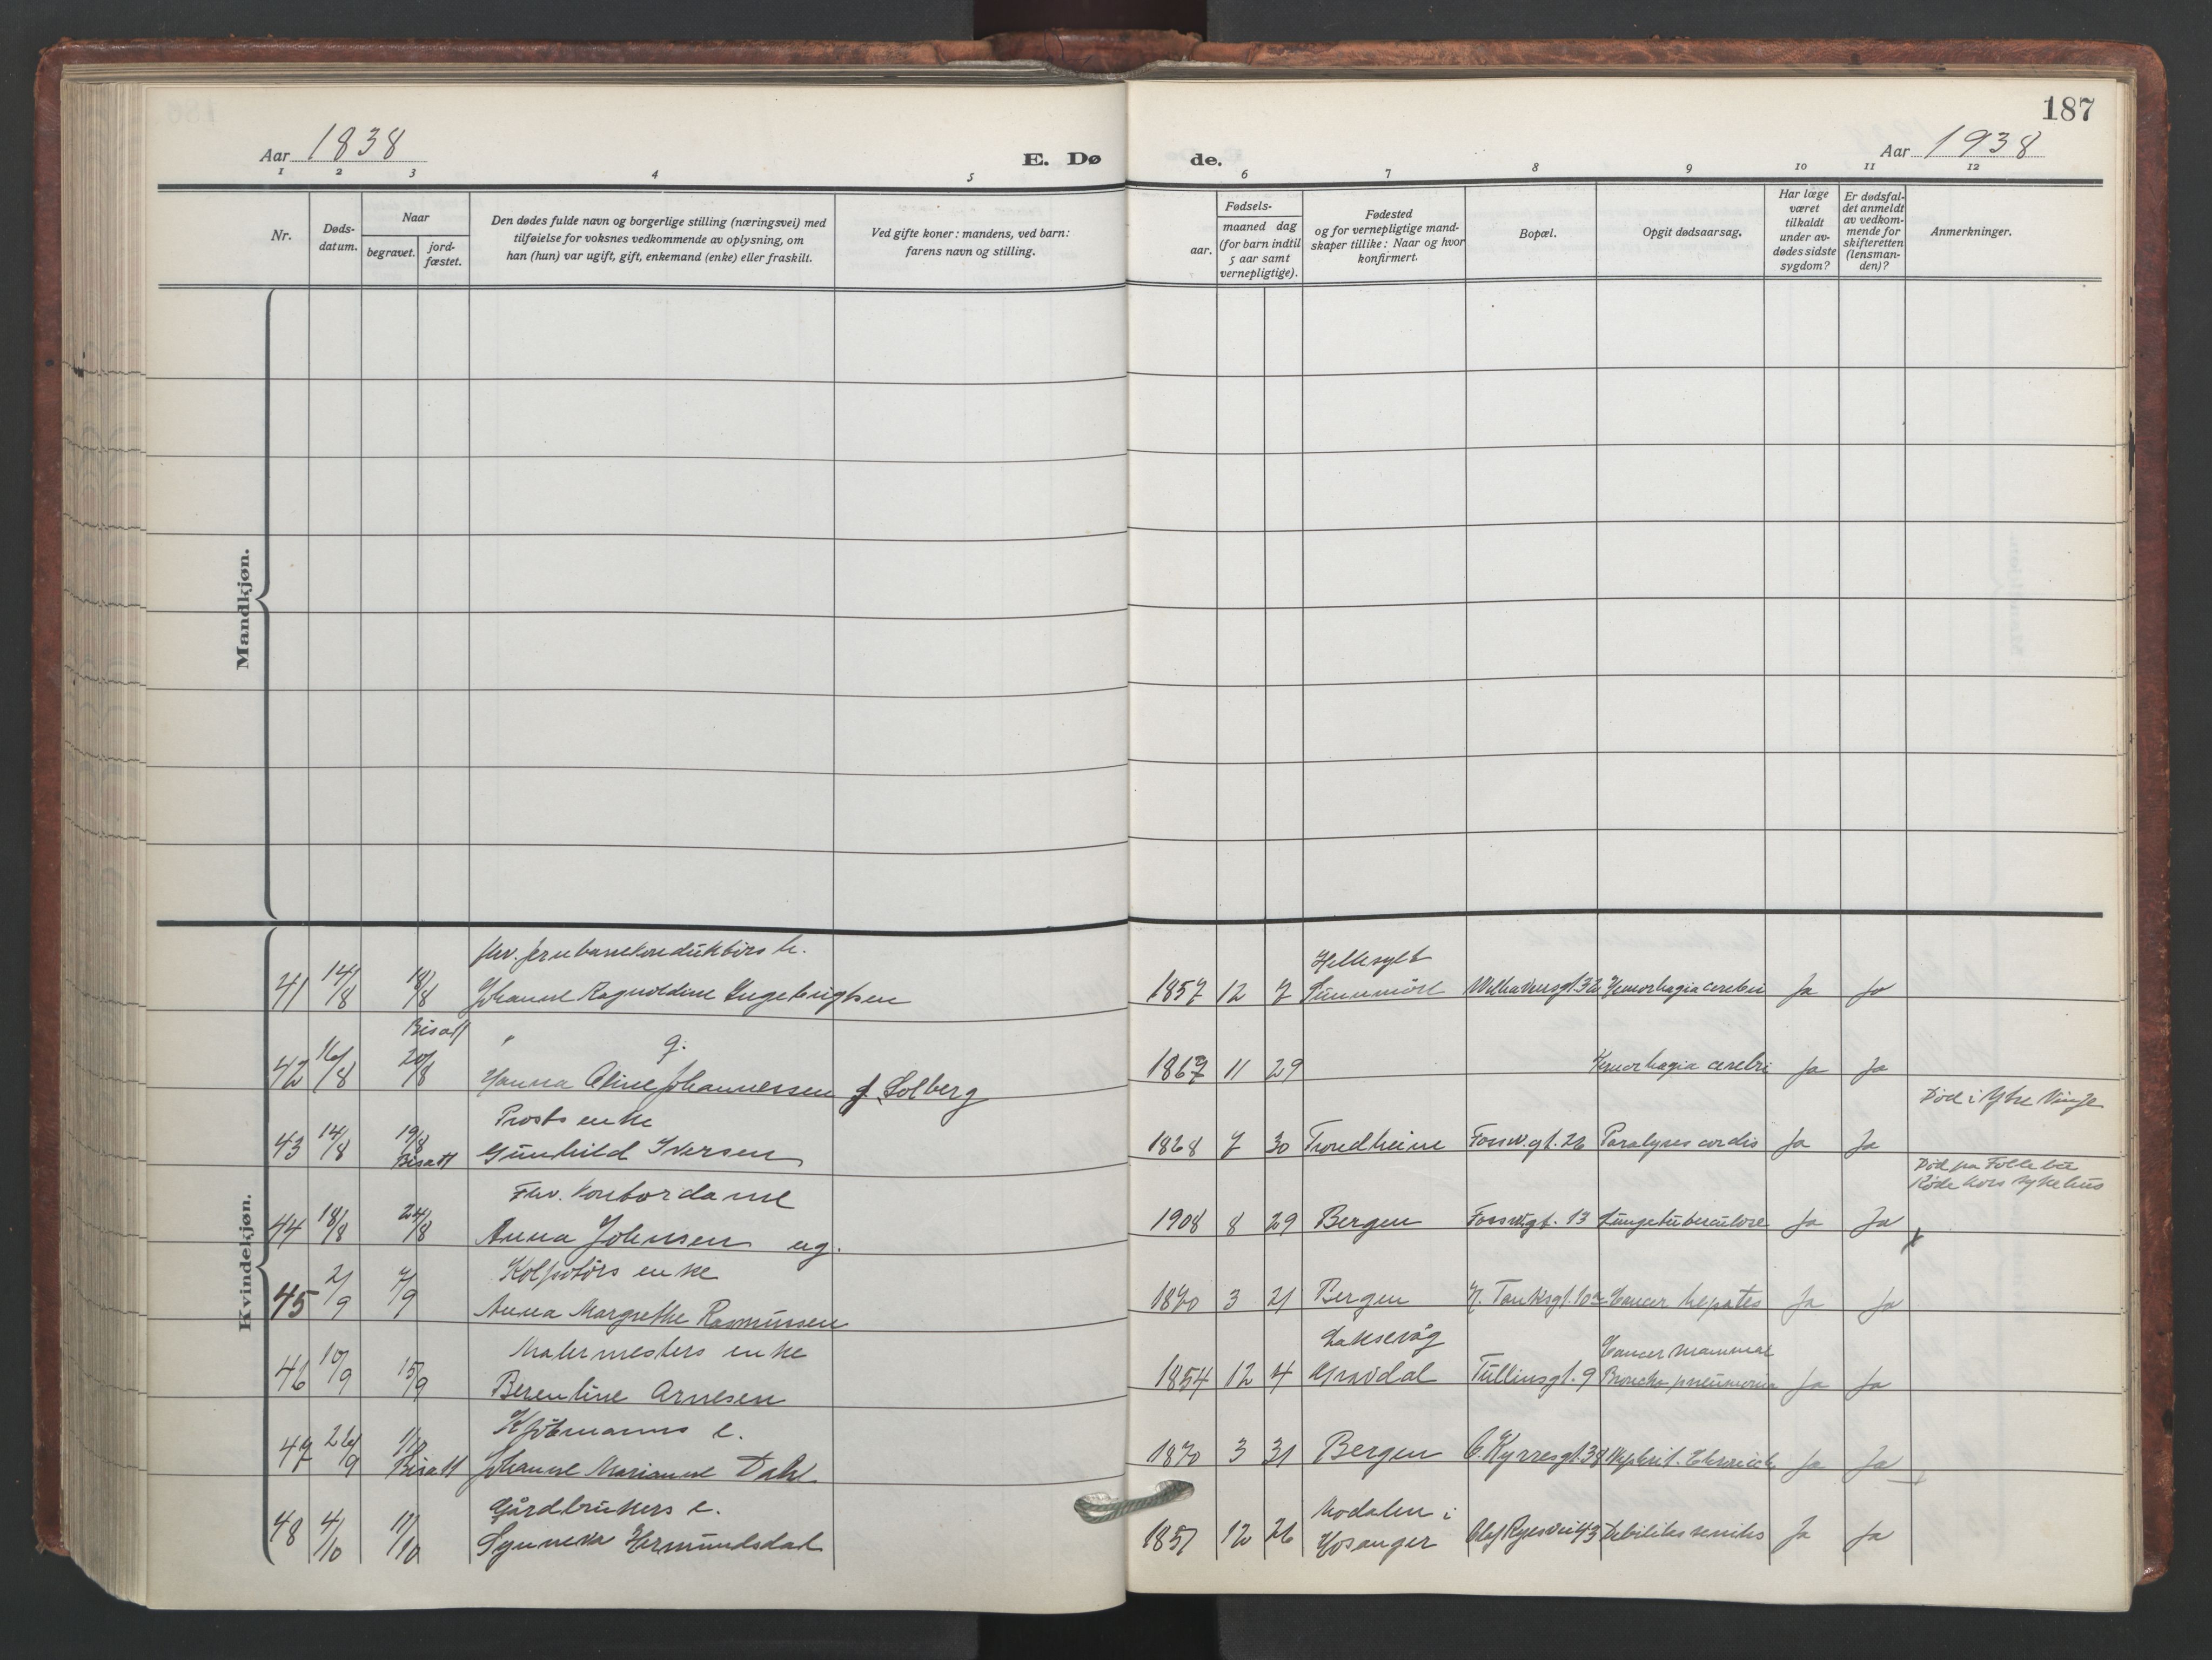 187
Aar 1838
E. Dø
de.
Aar 1938
1 2 3 4 5 6 7 8 9 10 11 12
Nr.
Døds-
datum.
Naar
begravet.
jord-
fæstet.
Den dødes fulde navn og borgerlige stilling (næringsvei) med
tilføielse for voksnes vedkommende av oplysning, om
han (hun) var ugift, gift, enkemand (enke) eller fraskilt.
Ved gifte koner: mandens, ved barn:
farens navn og stilling.
Fødsels-
aar.
maaned dag
(for barn indtil
5 aar samt
vernepligtige).
Fødested
og for vernepligtige mand-
skaper tillike: Naar og hvor
konfirmert.
Bopæl.
Opgit dødsaarsag.
Har læge
været
tilkaldt
under av-
dødes sidste
sygdom?
Er dødsfal-
det anmeldt
av vedkom-
mende for
skifteretten
(lensman-
den)?
Anmerkninger.
Mandkjøn.
Kvindekjøn.
Hellesylt
41 14/8 18/8 Johanne Ragnoldine Ingebrigtsen 1857 12 7 Sunnmöre Welhavensgt. 32 Hemorhagia cerebri Ja Ja
Bisatt " g.
42 16/8 20/8 Hanna Oline Johannessen f. Solberg 1867 11 29 Hemorhagia cerebri Ja Ja
Død i Ytre Vinje
Prosts enke
43 14/8 19/8 Bisatt Gunhild Iversen 1868 7 30 Trondheim Fossw.gt. 26 Paralyses cordis Ja Ja
Død på Follebu
Røde Kors sykehus
Fhv. Kontordame
44 18/8 24/8 Anna Johnsen ug. 1908 8 29 Bergen Fosswgt. 13 Lungetuberculose Ja Ja x
enke
45 2/9 7/9 Anna Margrethe Rasmussen 1870 3 21 Bergen N. Tanksgt. 10a Cancer hepates Ja Ja
Malermesters enke
Laksevåg
Cancer mammae
46 10/9 15/9 Berentine Arnesen 1854 12 4 Gravdal Tullinsgt. 9 Broncho pneumonia Ja Ja
Kjöbmanns e.
47 26/9 1/10 Bisatt Johanne Marianne Dahl 1870 3 31 Bergen O. Kyrresgt. 38 Nephrit. Chronich Ja Ja
Gårdbrukers e.
Modalen i
48 4/10 11/10 Synneva Hermundsdal 1851 12 26 Hosanger Olaf Ryesvei 43 Debilitas senilis Ja Ja